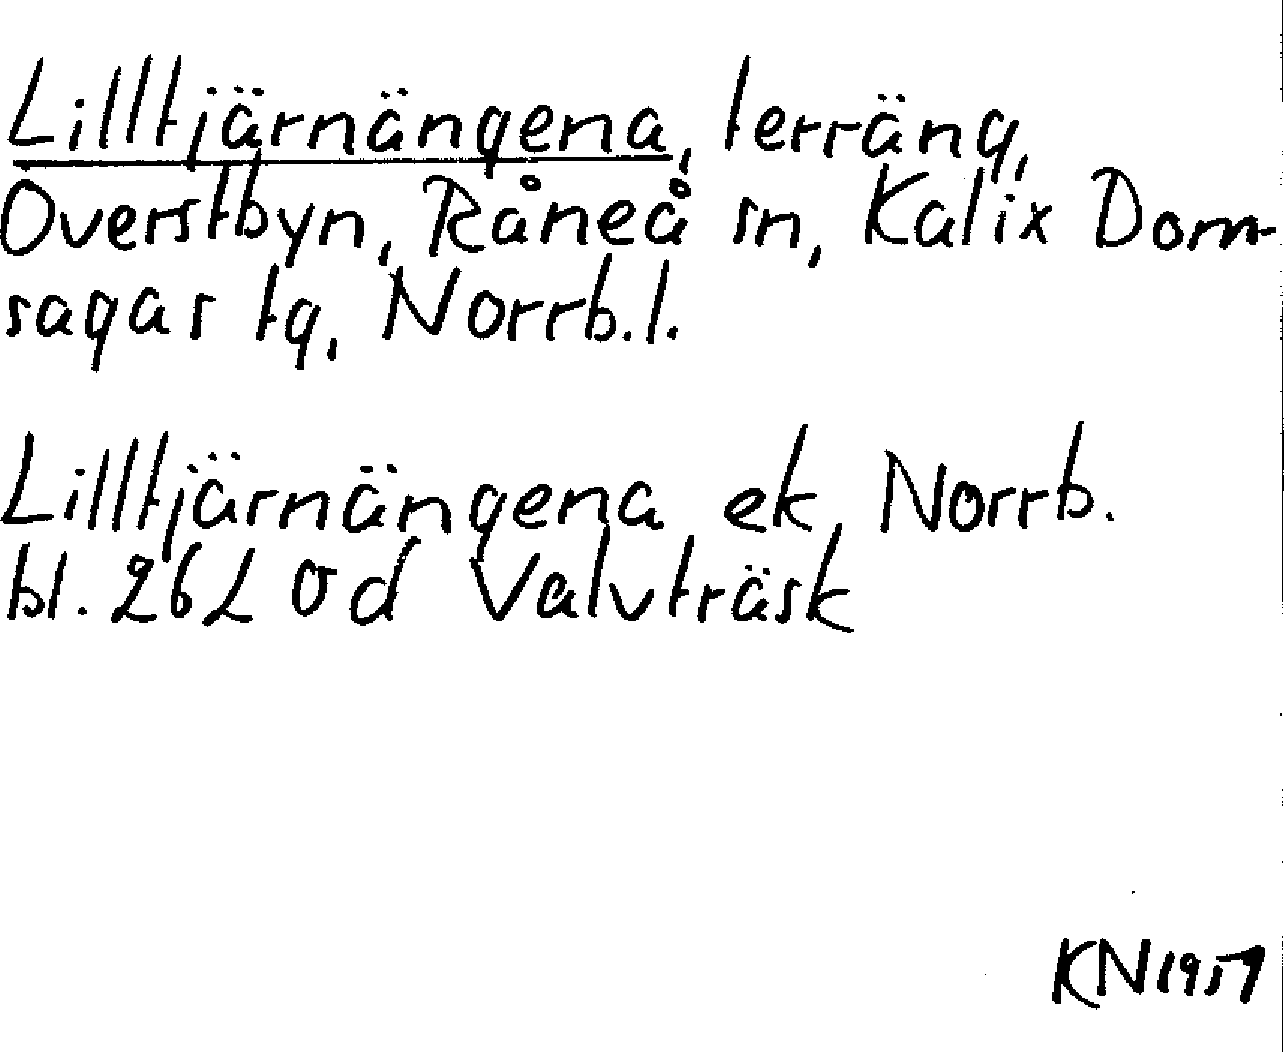 Lilltjärnängena, terräng,
Överstbyn, Råneå sn, Kalix Dom-
sagas tg, Norrb.l.
Lilltjärnängena ek, Norrb.
bl. 26L 0d Valvträsk
KN1957